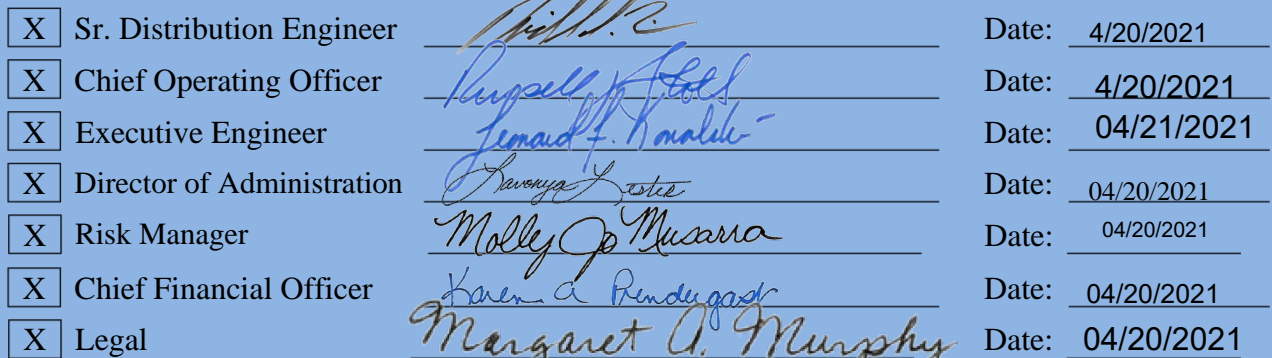 X Sr. Distribution Engineer Date: 4/20/2021
X Chief Operating Officer Russell J Stoll Date: 4/20/2021
X Executive Engineer Leonard F. Kowalski Date: 04/21/2021
X Director of Administration Lavonya Lester Date: 04/20/2021
X Risk Manager Molly Jo Musarra Date: 04/20/2021
X Chief Financial Officer Karen A Prendergast Date: 04/20/2021
X Legal Margaret A. Murphy Date: 04/20/2021